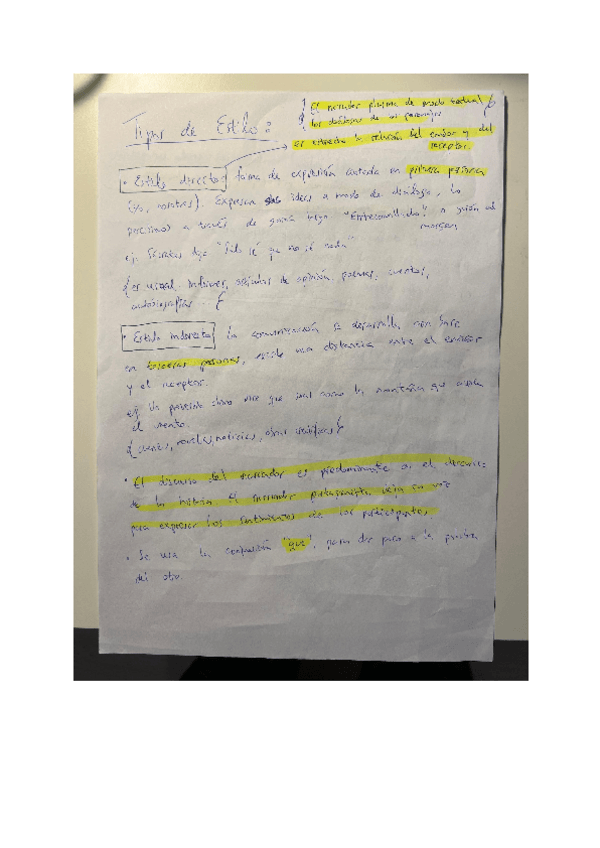 Tipos de Estilo:
{ El narrador plasma de modo textual }
los diálogos de un personaje
es estrecha la relación del emisor y del
receptor.
• Estilo directo: forma de expresión contada en primera persona
(yo, nosotros). Expresan sus ideas a modo de diálogo, lo
a través de "Entrecomillado" o guión al
margen
ej. Sócrates dijo "Solo sé que no sé nada"
{ es usual. Informes, artículos de opinión, poemas, cuentos,
autobiografías {
• Estilo indirecto: La comunicación se desarrolla
en terceras personas, existe una distancia entre el emisor
y el receptor.
ej Un proverbio chino dice que sea como la montaña que
el viento.
{ cuentos, novelas, noticias, obras científicas }
• El discurso del narrador es predominante en el
de la historia. El narrador su voz
para expresar los sentimientos de los participantes.
• Se usa la conjunción "que", para dar paso a la
del otro.